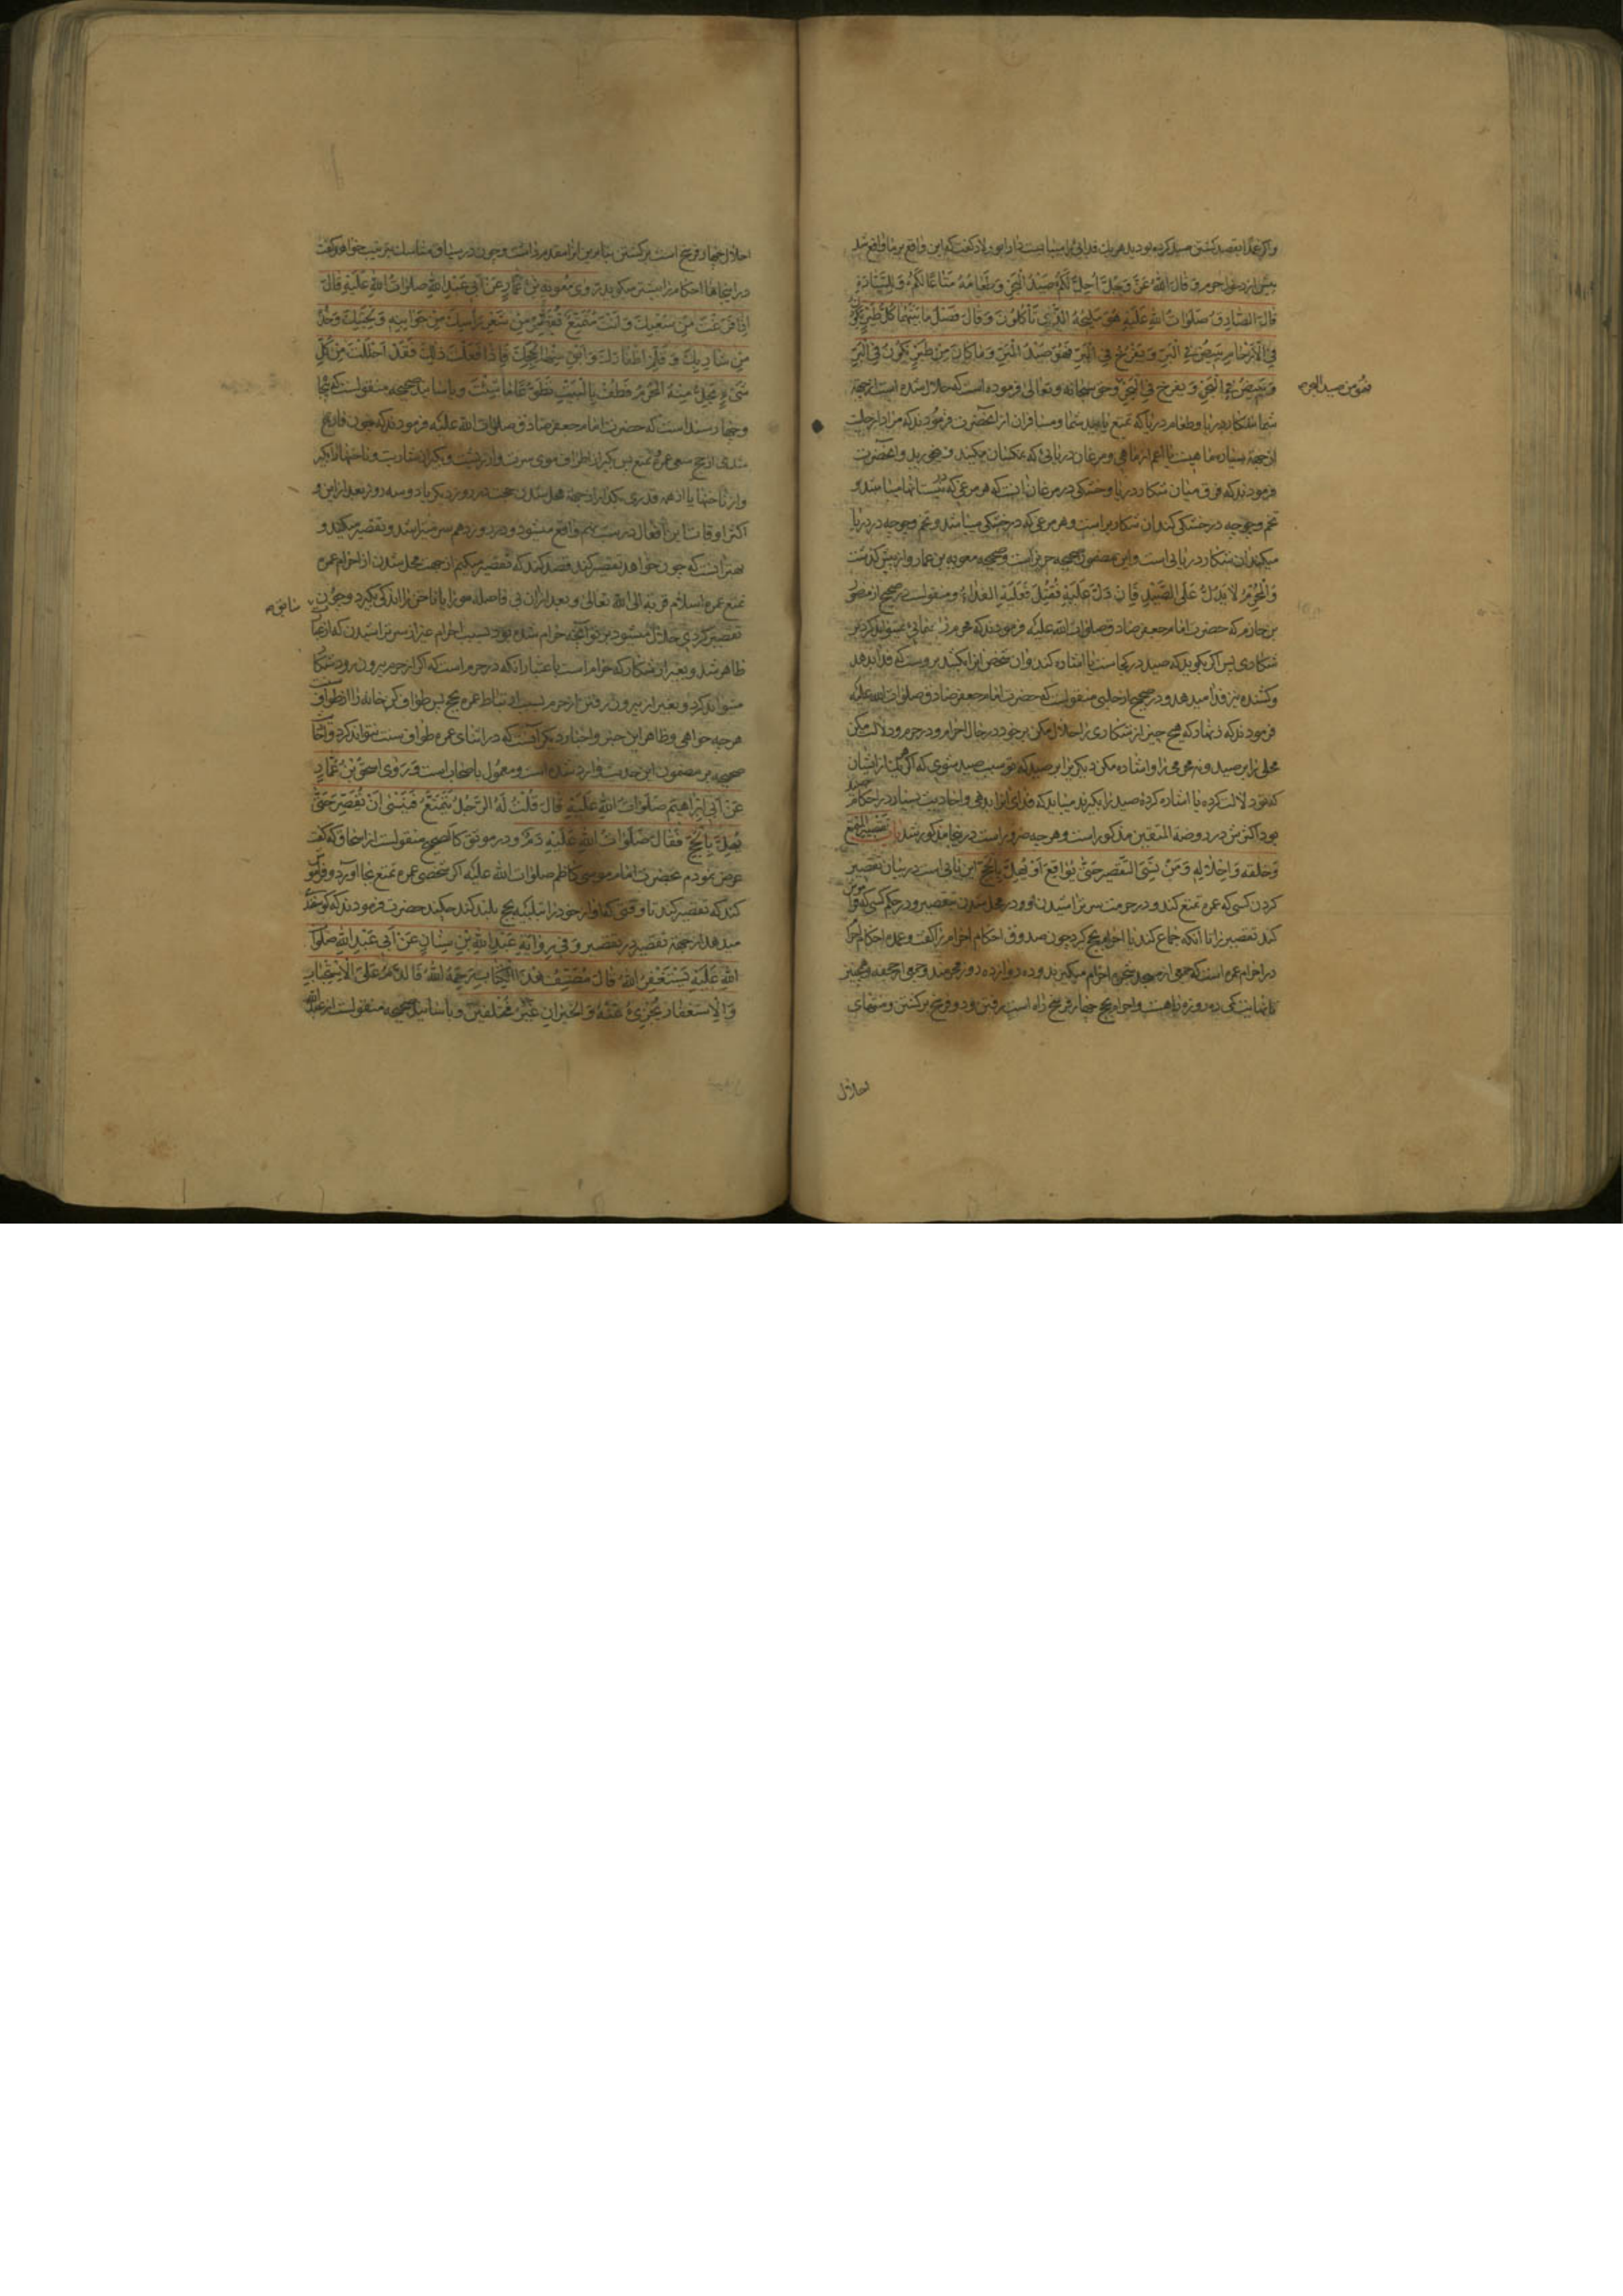 واکر عمدا بقصد کشتن صید کرده بودید هر یك فدائی را میبایست داد ابو ولاد کفت که این واقع بر ما واقع شد
پیش از دخول حرم وَ قالَ اللهُ عَزَّ وَجَلَّ اُحِلَّ لَكُمْ صَيْدُ الْبَحْرِ وَ طَعَامُهُ مَتَاعًا لَكُمْ وَ لِلسَّيَّارَةِ
قالَ الصَّادِقُ صَلَوَاتُ اللهِ عَلَيْهِ هُوَ مَلِيحُهُ الَّذِي تَأْكُلُونَ وَقَالَ فَصْلُ مَا بَيْنَهُمَا كُلُّ طَيْرٍ يَكُونُ
فِي الْآجَامِ يَبِيضُ فِي الْبَرِّ وَ يُفْرِخُ فِي الْبَرِّ فَهُوَ صَيْدُ الْبَرِّ وَمَا كَانَ مِنْ طَيْرٍ يَكُونُ فِي الْبَرِّ
وَ يَبِيضُ فِي الْبَحْرِ وَ يُفْرِخُ فِي الْبَحْرِ وحق سبحانه وتعالی فرموده است که حلال شده است از جهة
فهو من صيد البحر
شما شکار دریا و طعام دریا که تمتع یابید شما ومسافران از انحضرت فرمودند که مراد از حلیت
از جهة سیاره ماهیست یا اعم از ماهی و مرغان دریائی که نمکسان میکنند و میخورید و انحضرت
فرمودند که فرق میان شکار دریا و خشکی در مرغان انست که هر مرغی که در نیستانها میباشد و
تخم وجوجه در خشکی کند ان شکار بر است و هر مرغی که در خشکی میباشد و تخم وجوجه در دریا
میکند ان شکار دریائی است و این مضمون صحیحه حریز است و صحیحه معویه بن عمار و از پیش کذشت
وَالْمُحْرِمُ لَا يَدُلُّ عَلَى الصَّيْدِ فَإِنْ دَلَّ عَلَيْهِ فَقُتِلَ فَعَلَيْهِ الْفِدَاءُ ومنقولست در صحیح از منصور
بن حازم که حضرت امام جعفر صادق صلوات الله علیه فرمودند که محرم راه نمائی نمیتواند کرد بر
شکاری پس اکر بکوید که صید در کجاست یا اشاره کند و ان شخص انرا بکشد بروست که فدا بدهد
وکشنده نیز فدا میدهد و در صحیح از حلبی منقولست که حضرت امام جعفر صادق صلوات الله علیه
فرمودند که زنهار که هیچ چیز از شکاری را حلال مکن بر خود در حال احرام و در حرم و دلالت مکن
محلی را بر صید و نه محرمی را و اشاره مکن دیکری را بر صید که تو سبب صید شوی که اکر یکی از ایشان
که تو دلالت کرده یا اشاره کرده صید را بکیرند میباید که فدای انرا بدهی واحادیث بسیار در احکام صید
بود اکثرش در روضة المتقین مذکور است و هر چه ضرور است در اینجا مذکور شد باب تقصير المتمتع
وَحلقه وَاِحلاله وَمَنْ نَسِيَ التَّقْصِيرَ حَتَّى يُوَاقِعَ اَوْ يُهِلَّ بِالْحَجِّ این بابی است در بیان تقصیر
کردن کسی که عمره تمتع کند و در حرمت سر تراشیدن او و در محل شدن بتقصیر و در حکم کسی که فراموش
کند تقصیر را تا انکه جماع کند یا احرام بحج کرد چون صدوق احکام احرام را کفت و عمده احکام احرام
در احرام عمره است که جمعی از مسجد شجره احرام میکیرند و ده دوازده روز محرمند و جمعی از جحفه
احلال
احلال چهار فرسخ است بر کشتن بنابرین انرا مقدم داشت و چون در سیاق مناسك بترتیب خواهد کفت
در اینجاها احکام را بیشتر میکوید رَوَى مُعوِيَةُ بْنُ عَمَّارٍ عَنْ اَبِي عَبْدِ اللهِ صَلَوَاتُ اللهِ عَلَيْهِ قَالَ
اِذَا فَرَغْتَ مِنْ سَعْيِكَ وَ اَنْتَ مُتَمَتِّعٌ فَقَصِّرْ مِنْ شَعْرِ رَأْسِكَ مِنْ جَوَانِبِهِ وَ لِحْيَتِكَ وَخُذْ
مِنْ شَارِبِكَ وَ قَلِّمْ اَظْفَارَكَ وَ اَبْقِ مِنْهَا لِحَجِّكَ فَاِذَا فَعَلْتَ ذَلِكَ فَقَدْ اَحْلَلْتَ مِنْ كُلِّ
شَيْءٍ يُحِلُّ مِنْهُ الْمُحْرِمُ فَطُفْ بِالْبَيْتِ تَطَوُّعًا مَا شِئْتَ وباسانید صحیحه منقولست که پنجاه
وچهار سند است که حضرت امام جعفر صادق صلوات الله علیه فرمودند که چون فارغ
شدی از سعی عمره تمتع پس بکیر از اطراف موی سرت و از ریشت و بکیر از شاربت و ناخنها را بکیر
واز ناخنها یا از همه قدری بکذار از جهة محل شدن حجت در روز دیکر یا دو سه روز بعد از این و
اکثر اوقات این افعال در میشود و در روز دهم سر میتراشد و تقصیر میکند و
بهتر انست که چون خواهد تقصیر کند قصد کند که تقصیر میکنم از جهت محل شدن از احرام عمره
تمتع عمره اسلام قربة الی الله تعالی و بعد از ان بی فاصله مو را یا ناخن را اندکی بکیرد و چون
تقصیر کردی حلال میشود بر تو آنچه حرام شده بود بسبب احرام غیر از سر تراشیدن که
ظاهر شد و بغیر از شکار که حرام است باعتبار آنکه در حرم است که اکر از حرم بیرون رود شکار
میتواند کرد و بغیر از بیرون رفتن از حرم بسبب ارتباط عمره بحج پس طواف کن خانه را از طواف سنت
هر چه خواهی و ظاهر این خبر و اخبار دیکر آنست که در اثنای عمره طواف سنت نتواند کرد و
صحیحه بر مضمون این حدیث وارد شده است و معمول باصحاب است وَ رَوَى اِسْحَقُ بْنُ عَمَّارٍ
عَنْ اَبِي اِبْرَاهِيمَ صَلَوَاتُ اللهِ عَلَيْهِ قَالَ قُلْتُ لَهُ الرَّجُلُ يَتَمَتَّعُ فَيَنْسَى اَنْ يُقَصِّرَ حَتَّى
يُهِلَّ بِالْحَجِّ فَقَالَ صَلَوَاتُ اللهِ عَلَيْهِ دَمٌ و در موثق کالصحیح منقولست از اسحاق که کفت
عرض نمودم بحضرت امام موسی کاظم صلوات الله علیه اکر شخصی عمره تمتع بجا آورد و فراموش
کند که تقصیر کند تا وقتی که آواز خود را بتلبیه بحج بلند کند چکند حضرت فرمودند که کوسفندی
میدهد از جهة تقصیر در تقصیر وَ فِي رِوَايَةِ عَبْدِ اللهِ بْنِ سِنَانٍ عَنْ اَبِي عَبْدِ اللهِ صَلَوَاتُ
اللهِ عَلَيْهِ يَسْتَغْفِرُ اللهَ قَالَ مُصَنِّفُ هَذَا الْكِتَابِ رَحِمَهُ اللهُ فَالدَّمُ عَلَى الْاِسْتِحْبَابِ
وَالْاِسْتِغْفَارُ يُجْزِئُ عَنْهُ وَالْخَبَرَانِ غَيْرُ مُخْتَلِفَيْنِ وباسانید صحیحه منقولست از عبد الله